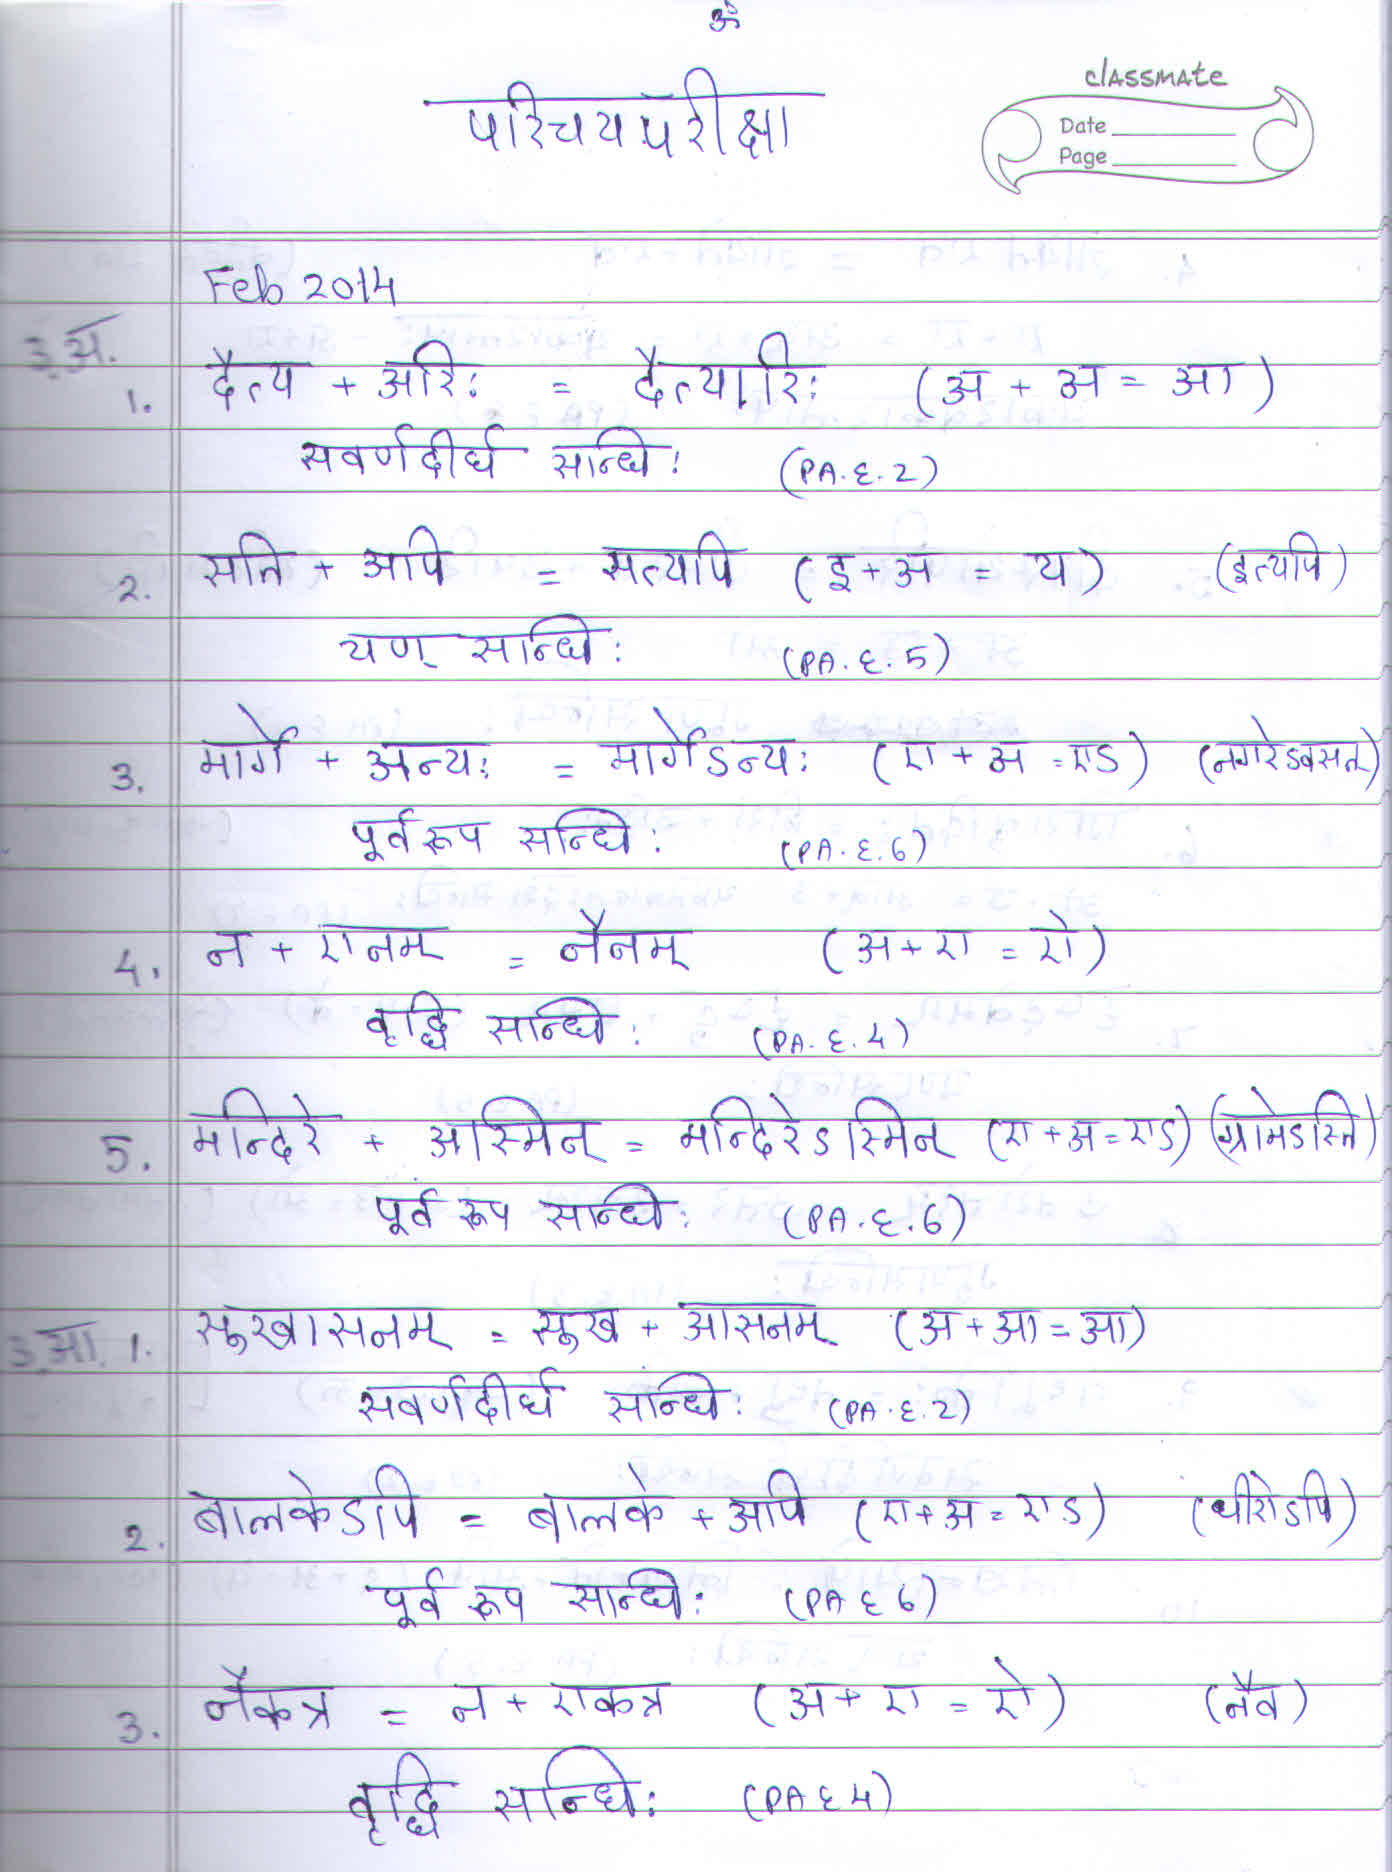 ॐ
परिचयपरीक्षा
classmate
Date
Page
Feb 2014
3.अ.
1. दैत्य + अरिः = दैत्यारिः (अ + अ = आ)
सवर्णदीर्घ सन्धिः (PA.६.2)
2. सति + अपि = सत्यपि (इ + अ = य) (इत्यपि)
यण् सन्धिः (PA.६.5)
3. मार्गे + अन्यः = मार्गेऽन्यः (ए + अ = एऽ) (नगरेऽवसत्)
पूर्वरूप सन्धिः (PA.६.6)
4. न + एनम् = नैनम् (अ + ए = ऐ)
वृद्धि सन्धिः (PA.६.4)
5. मन्दिरे + अस्मिन् = मन्दिरेऽस्मिन् (ए + अ = एऽ) (ग्रामेऽस्ति)
पूर्व रूप सन्धिः (PA.६.6)
3.आ. 1. सुखासनम् = सुख + आसनम् (अ + आ = आ)
सवर्णदीर्घ सन्धिः (PA.६.2)
2. बालकेऽपि = बालके + अपि (ए + अ = एऽ) (धीरोऽपि)
पूर्व रूप सन्धिः (PA ६ 6)
3. नैकत्र = न + एकत्र (अ + ए = ऐ) (नैव)
वृद्धि सन्धिः (PA ६ 4)